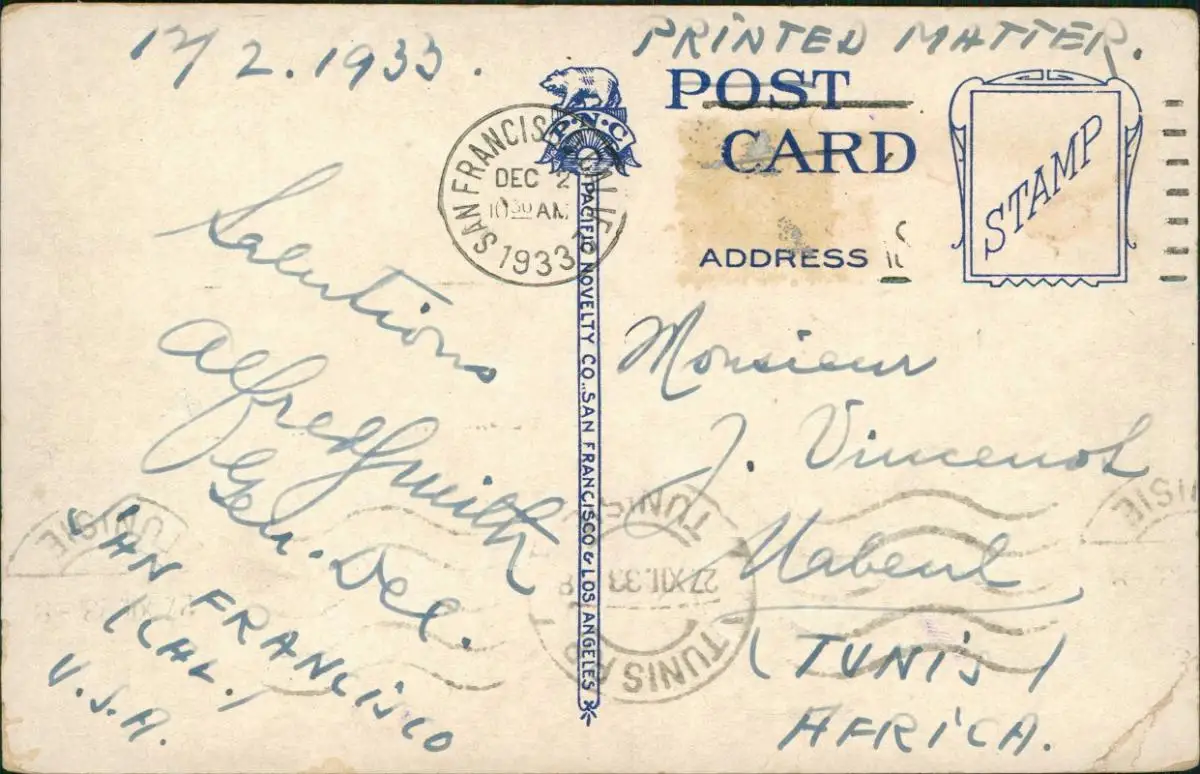 12/2.1933.
PRINTED MATTER.
POST
CARD
STAMP
ADDRESS
P·N·C
SAN FRANCISCO CALIF.
DEC 2
10 30 AM
1933
PACIFIC NOVELTY CO., SAN FRANCISCO & LOS ANGELES
Salutions
Alfred Smith
Gen. Del.
SAN FRANCISCO
(CAL.)
U.S.A.
Monsieur
J. Vincenot
Nabeul
(TUNIS)
AFRICA.
TUNISIE
TUNIS
27 XII. 33
TUNIS R.P
TUNISIE